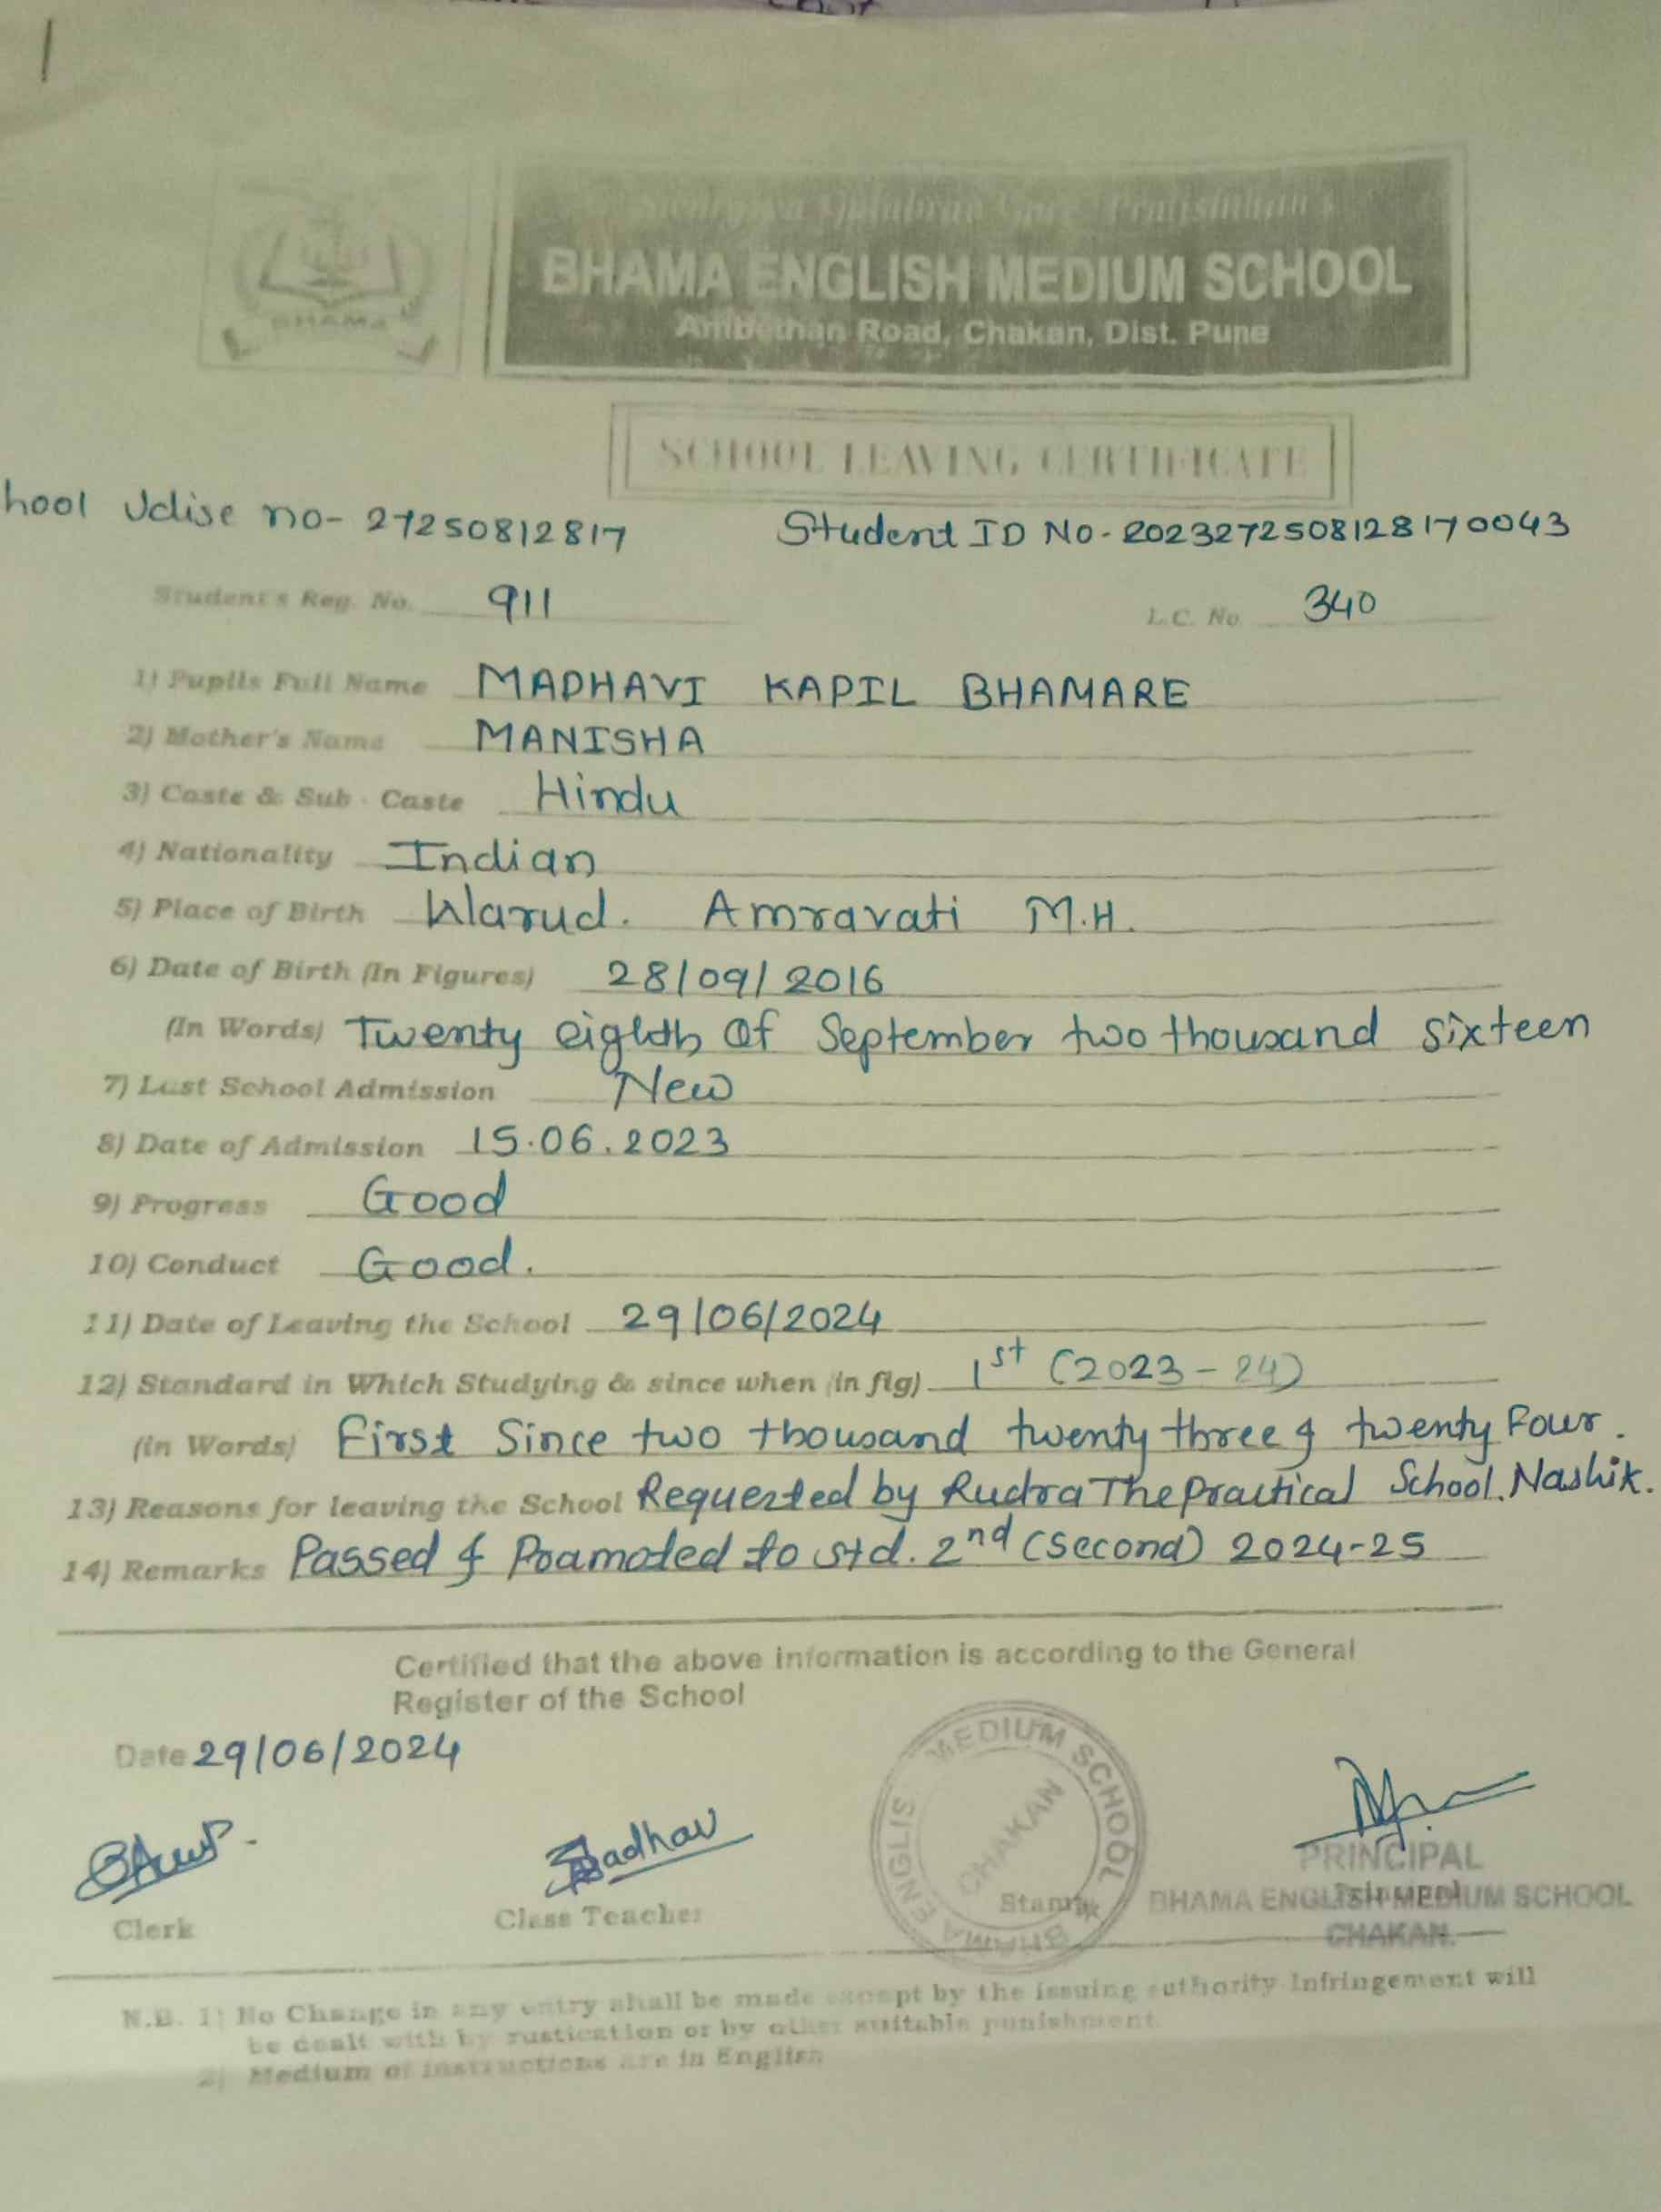 BHAMA
BHAMA ENGLISH MEDIUM SCHOOL
Ambethan Road, Chakan, Dist. Pune
SCHOOL LEAVING CERTIFICATE
hool Udise no- 27250812817 Student ID No- 2023272508128170043
Student's Reg. No. 911 L.C. No 340
1) Pupils Full Name MADHAVI KAPIL BHAMARE
2) Mother's Name MANISHA
3) Caste & Sub - Caste Hindu
4) Nationality Indian
5) Place of Birth Warud. Amravati M.H.
6) Date of Birth (In Figures) 28/09/2016
(In Words) Twenty eighth Of September two thousand sixteen
7) Last School Admission New
8) Date of Admission 15.06.2023
9) Progress Good
10) Conduct Good.
11) Date of Leaving the School 29/06/2024
12) Standard in Which Studying & since when (in fig) 1st (2023-24)
(in Words) First Since two thousand twenty three & twenty Four.
13) Reasons for leaving the School Requested by Rudra The Practical School. Nashik.
14) Remarks Passed & Poamoted to std. 2nd (Second) 2024-25
Certified that the above information is according to the General
Register of the School
Date 29/06/2024
Jadhav
Clerk Class Teacher Stamp
BHAMA ENGLIS MEDIUM SCHOOL
CHAKAN
PRINCIPAL
BHAMA ENGLISH MEDIUM SCHOOL
CHAKAN.
N.B. 1) No Change in any entry shall be made except by the issuing authority Infringement will
be dealt with by rustication or by other suitable punishment.
2) Medium of instructions are in English